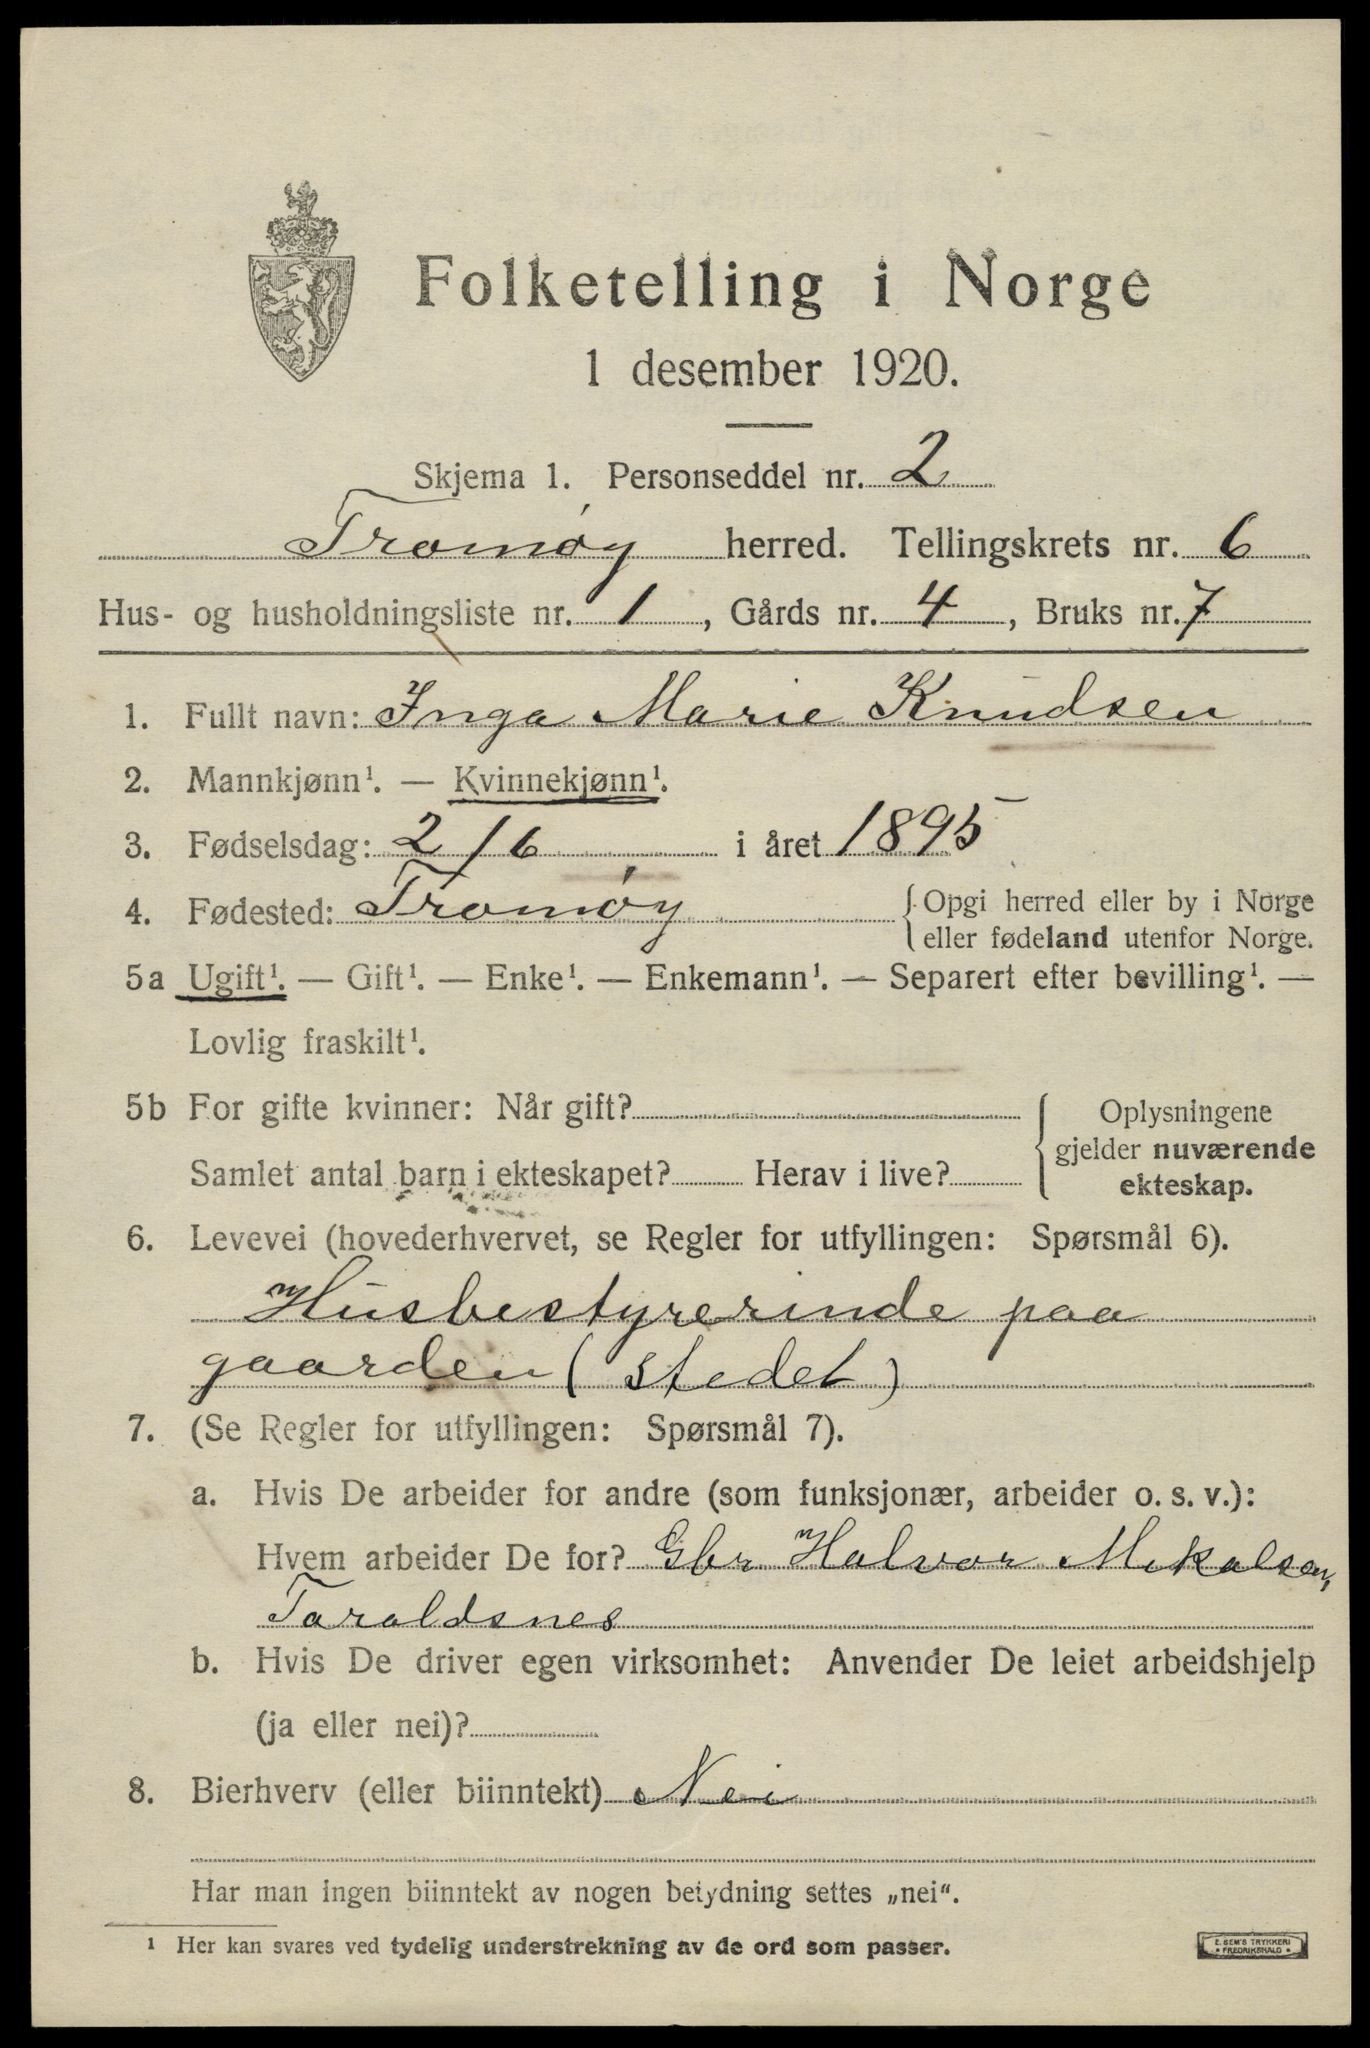 Folketelling i Norge
1 desember 1920.
Skjema 1. Personseddel nr. 2
Tromøy herred. Tellingskrets nr. 6
Hus- og husholdningsliste nr. 1, Gårds nr. 4, Bruks nr. 7
1. Fullt navn: Inga Marie Knudsen
2. Mannkjønn¹. — Kvinnekjønn¹.
3. Fødselsdag: 2/6 i året 1895
4. Fødested: Tromøy {Opgi herred eller by i Norge
eller fødeland utenfor Norge.
5a Ugift¹. — Gift¹. — Enke¹. — Enkemann¹. — Separert efter bevilling¹. —
Lovlig fraskilt¹.
5b For gifte kvinner: Når gift?
Samlet antal barn i ekteskapet? Herav i live?
Oplysningene
gjelder nuværende
ekteskap.
6. Levevei (hovederhvervet, se Regler for utfyllingen: Spørsmål 6).
Husbestyrerinde paa
gaarden (stedet)
7. (Se Regler for utfyllingen: Spørsmål 7).
a. Hvis De arbeider for andre (som funksjonær, arbeider o. s. v.):
Hvem arbeider De for? Gbr Halvor Mikalsen,
Taraldsnes
b. Hvis De driver egen virksomhet: Anvender De leiet arbeidshjelp
(ja eller nei)?
8. Bierhverv (eller biinntekt) Nei
Har man ingen biinntekt av nogen betydning settes „nei“.
¹ Her kan svares ved tydelig understrekning av de ord som passer.
E. SEM'S TRYKKERI
FREDRIKSHALD